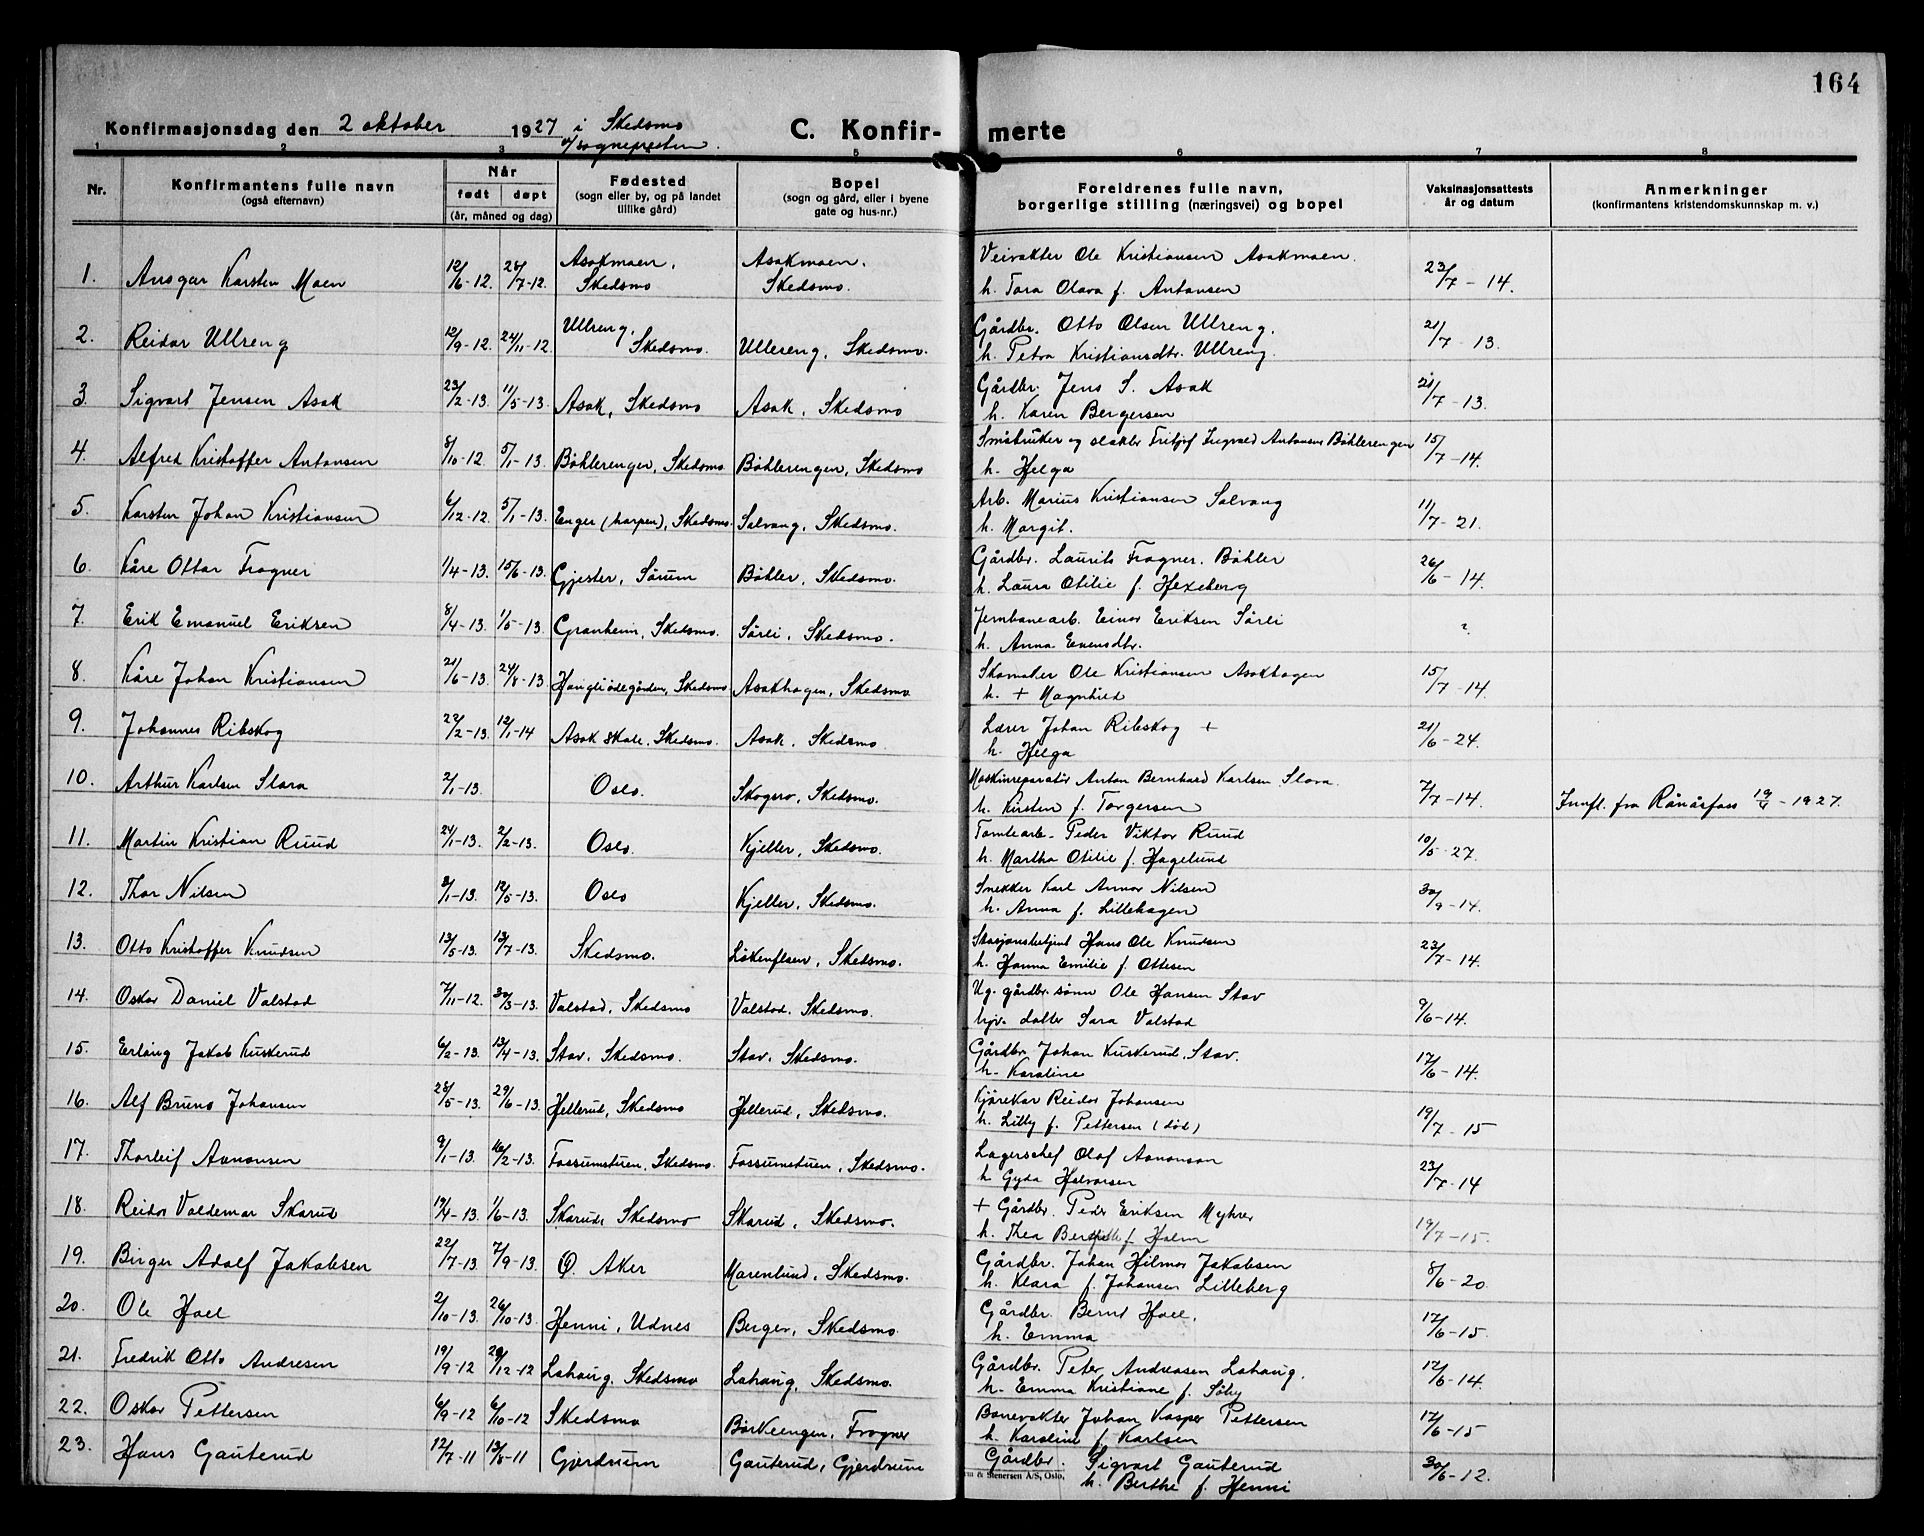 164
Konfirmasjonsdag den 2 oktober 1927 i Skedsmo
v/ sognepresten.
C. Konfirmerte
1 2 3 5 6 7 8
Nr. Konfirmantens fulle navn (også efternavn) Når født døpt (år, måned og dag) Fødested (sogn eller by, og på landet tillike gård) Bopel (sogn og gård, eller i byene gate og hus-nr.) Foreldrenes fulle navn, borgerlige stilling (næringsvei) og bopel Vaksinasjonsattests år og datum Anmerkninger (konfirmantens kristendomskunnskap m. v.)
1. Ansgar Karsten Moen 12/6-12. 26/7-12. Asakmoen, Skedsmo Asakmoen, Skedsmo. Veivokter Ole Kristiansen Asakmoen.
h. Tora Olava f. Antonsen 23/7-14.
2. Reidar Ullreng 12/9-12. 24/11-12 Ullreng, Skedsmo. Ullereng, Skedsmo. Gårdbr. Otto Olsen Ullreng.
h. Petra Kristiansdtr. Ullreng. 21/7-13.
3. Sigvart Jensen Asak 23/2-13. 11/5-13. Asak, Skedsmo Asak, Skedsmo Gårdbr. Jens S. Asak
h. Karen Bergersen 21/7-13.
4. Alfred Kristoffer Antonsen 8/10-12. 5/1-13. Bøhlerengen, Skedsmo Bøhlerengen, Skedsmo Småbruker og slakter Fritjof Ingvald Antonsen Bøhlerengen
h. Helga 15/7-14.
5. Karsten Johan Kristiansen 6/12-12. 5/1-13. Enger (harpen), Skedsmo. Solvang, Skedsmo. Arb. Marius Kristiansen Solvang
h. Margit. 11/7-21.
6. Kåre Ottar Frogner 1/4-13. 15/6-13. Gjester, Sørum Bøhler, Skedsmo. Gårdbr. Laurits Frogner. Bøhler
h. Laura Otilie f. Hexeberg 26/6-14.
7. Erik Emanuel Eriksen 8/4-13. 1/5-13. Granheim, Skedsmo. Sørli, Skedsmo. Jernbanearb. Einar Eriksen Sørli
h. Anna Evensdtr. ?
8. Kåre Johan Kristiansen 21/6-13. 24/8-13 Haugliødegården, Skedsmo Asakhagen, Skedsmo Skomaker Ole Kristiansen Asakhagen
h. + Magnhild 15/7-14.
9. Johannes Ribskog 22/2-13. 12/1-14 Asak skole, Skedsmo. Asak, Skedsmo. Lærer Johan Ribskog +
h. Helga 21/6-24.
10. Arthur Karlsen Slora 2/1-13. Oslo. Skogsro, Skedsmo. Maskinreparatør Anton Bernhard Karlsen Slora
h. Kirsten f. Torgersen 2/7-14. Innfl. fra Rånåsfoss 19/4-1927.
11. Martin Kristian Ruud 24/1-13. 2/2-13. Oslo. Kjeller, Skedsmo. Tomtearb. Peder Viktor Ruud
h. Martha Otilie f. Hagelund 10/5-27.
12. Thor Nilsen 3/1-13. 12/5-13. Oslo Kjeller, Skedsmo. Snekker Karl Annar Nilsen
h. Anna f. Lillehagen 30/9-14.
13. Otto Kristoffer Knudsen 13/5-13. 13/7-13. Skedsmo. Løkenflaen, Skedsmo. Stasjonsbetjent Hans Ole Knudsen
h. Hanna Emilie f. Ottesen 23/7-14.
14. Oskar Daniel Valstad 7/11-12. 30/3-13. Valstad, Skedsmo Valstad, Skedsmo. Ug. gårdbr. sønn Ole Hansen Stav
hjv. datter Sara Valstad 9/6-14.
15. Erling Jakob Kuskerud 6/2-13. 13/4-13. Stav, Skedsmo. Stav, Skedsmo. Gårdbr. Johan Kuskerud, Stav.
h. Karoline 17/6-14.
16. Alf Bruno Johansen 28/5-13. 29/6-13. Hellerud, Skedsmo Hellerud, Skedsmo. Kjørekar Reidar Johansen
h. Lilly f. Pettersen (død) 19/7-15
17. Thorleif Aanonsen 9/1-13. 16/2-13. Fossumstuen, Skedsmo. Fossumstuen, Skedsmo. Lagerschef Olaf Aanonsen
h. Gyda Halvorsen 23/7-14
18. Reidar Valdemar Skarud 19/4-13. 1/6-13. Skarud, Skedsmo Skarud, Skedsmo. + Gårdbr. Peder Eriksen Myhrer
h. Thea f. Holm 19/7-15.
19. Birger Adolf Jakobsen 22/7-13. 7/9-13. Ø Aker Marenlund, Skedsmo. Gårdbr. Johan Hilmar Jakobsen
h. Klara f. Johansen Lilleberg 8/6-20.
20. Ole Hoel 2/10-13. 26/10-13. Henni, Udnes Berger, Skedsmo. Gårdbr. Bernt Hoel.
h. Emma 17/6-15.
21. Fredrik Otto Andresen 19/9-12 26/12-12 Lahaug, Skedsmo Lahaug, Skedsmo. Gårdbr. Peter Andreasen Lahaug.
h. Emma Kristiane f. Søby 17/6-14.
22. Oskar Pettersen 6/9-12 6/10-12 Skedsmo Børkeengen, Frogner Banevokter Johan Kasper Pettersen
h. Karoline f. Karlsen 17/6-15
23. Hans Gauterud 12/7-11 13/8-11 Gjerdrum Gauterud, Gjerdrum Gårdbr. Sigvart Gauterud
h. Berthe f. Henni 30/6-12.
& Stenersen A/S, Oslo.